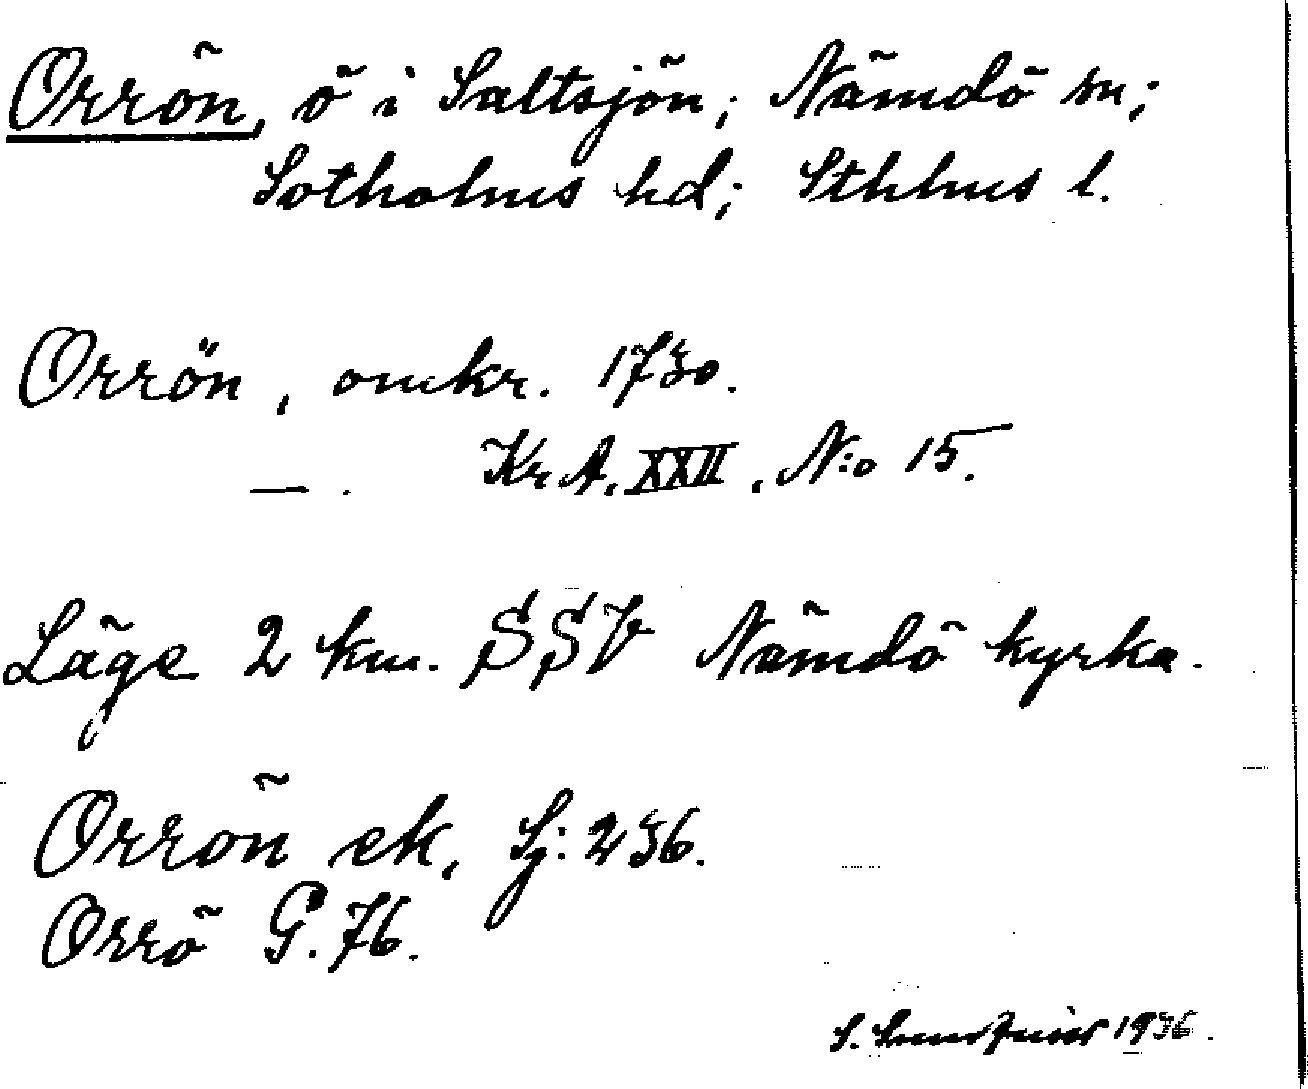 Orrön, ö i Saltsjön; Nämdö sn;
Sotholms hd; Sthlms l.
Orrön, omkr. 1730.
— . KrA. XXII, N:o 15.
Läge 2 km. SSV Nämdö kyrka.
Orrön ek. Sj: 236.
Orrö G. 76.
S. 1936.